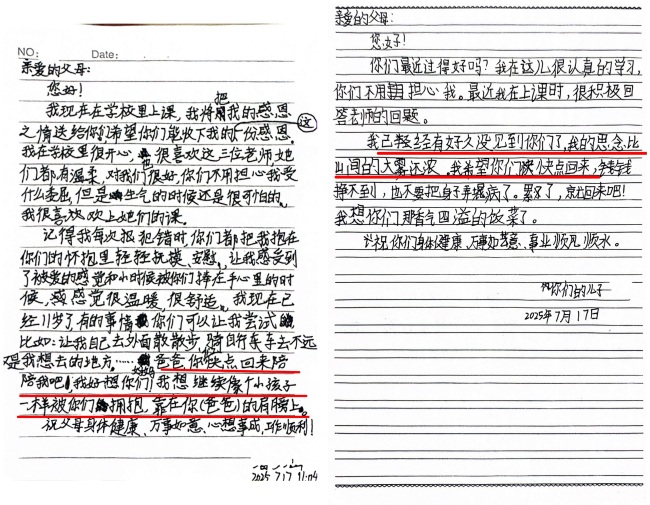 NO:
Date:
亲爱的父母:
您好!
我现在在学校里上课,我将把我的感恩
之情送给你们,希望你们能收下我的这份感恩。
我在学校里很开心,也很喜欢这三位老师,她
们都有温柔,对我们很好,你们不用担心我受
什么委屈,但是生气的时候还是很可怕的。
我很喜欢上她们的课。
记得我每次报犯错时,你们都把我抱在
你们的怀抱里轻轻抚摸、安慰,让我感受到
了被爱的感觉和小时候被你们捧在手心里的时
候,感觉很温暖,很舒适。我现在已
经11岁了,有的事情你们可以让我尝试
比如:让我自己去外面散散步,骑自行车去不远
是我想去的地方。……爸爸你快点回来陪
陪我吧!我好想你们!我想继续像个小孩子
一样被你们拥抱,靠在你(爸爸)的肩膀上。
祝父母身体健康、万事如意、心想事成,工作顺利!
2025 7 17
亲爱的父母:
您好!
你们最近过得好吗?我在这儿很认真的学习,
你们不用担心我。最近我在上课时,很积极回
答老师的回题。
我已轻经有好久没见到你们了,我的思念比
山间的大雾还浓。我希望你们能快点回来,争钱
挣不到,也不要把身子弄病了。累了,就回来吧!
我想你们那香气四溢的饭菜了。
祝你们身体健康、万事如意、事业顺风顺水。
你们的儿子
2025年7月17日